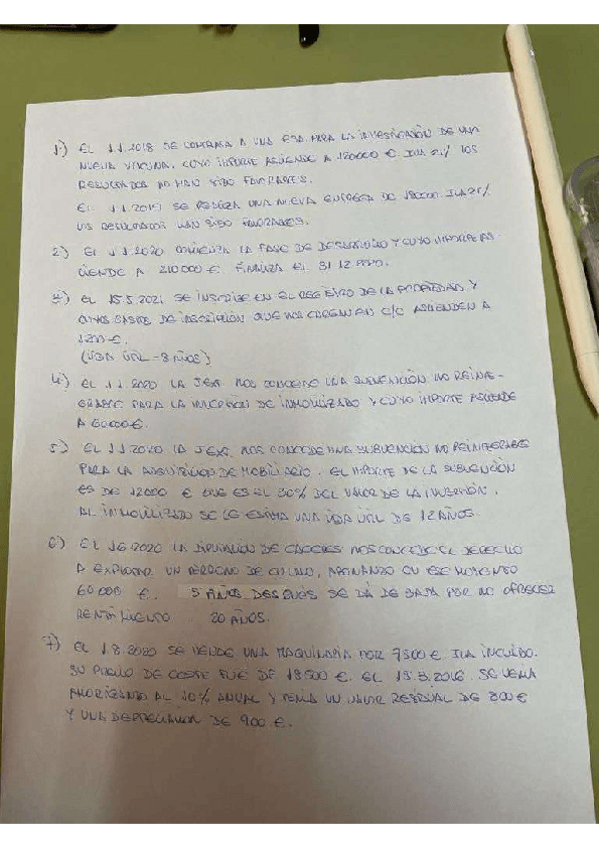 1) EL 1.1.2018 SE CONTRATA A UNA ESA. PARA LA INVESTIGACIÓN DE UNA
NUEVA VACUNA, CUYO IMPORTE ASCIENDE A 120000 €. IVA 21% LOS
RESULTADOS NO HAN SIDO FAVORABLES.
EL 1.1.2019 SE REALIZA UNA NUEVA ENTREGA DE IVA 21%
LOS RESULTADOS HAN SIDO FAVORABLES.
2) EL 1.1.2020 COMIENZA LA FASE DE DESARROLLO Y CUYO IMPORTE AS-
CIENDE A 210000 €. FINALIZA EL 31.12
3) EL 15.5.2021 SE INSCRIBE EN EL REGISTRO DE LA PROPIEDAD Y
OTROS GASTOS DE INSCRIPCIÓN QUE NOS CARGAN EN C/C ASCIENDEN A
1200 €.
(VIDA ÚTIL - 8 AÑOS)
4) EL 1.1.2020 LA JEX. NOS CONCEDE UNA SUBVENCIÓN NO REINTE-
GRABLE PARA LA DE INMOVILIZADO Y CUYO IMPORTE ASCIENDE
A 60000 €.
5) EL 1.1.2020 LA JEX. NOS CONCEDE UNA SUBVENCIÓN NO REINTEGRABLE
PARA LA ADQUISICIÓN DE MOBILIARIO. EL IMPORTE DE LA SUBVENCIÓN
ES DE 12000 € QUE ES EL 30% DEL VALOR DE LA INVERSIÓN.
AL INMOVILIZADO SE LE ESTIMA UNA VIDA ÚTIL DE 12 AÑOS.
6) EL 1.6.2020 LA DIPUTACIÓN DE CÁCERES NOS CONCEDE EL DERECHO
A EXPLOTAR UN TERRENO DE CULTIVO, ABONANDO EN ESE MOMENTO
60000 €. 5 AÑOS DESPUÉS SE DÁ DE BAJA POR NO OFRECER
RENDIMIENTO 20 AÑOS.
7) EL 1.8.2020 SE VENDE UNA MAQUINARIA POR 7500 € IVA INCLUIDO.
SU PRECIO DE COSTE FUE DE 18500 € EL 15.3.2016. SE VENÍA
AMORTIZANDO AL 10% ANUAL Y TENÍA UN VALOR RESIDUAL DE 800 €
Y UNA DE 900 €.